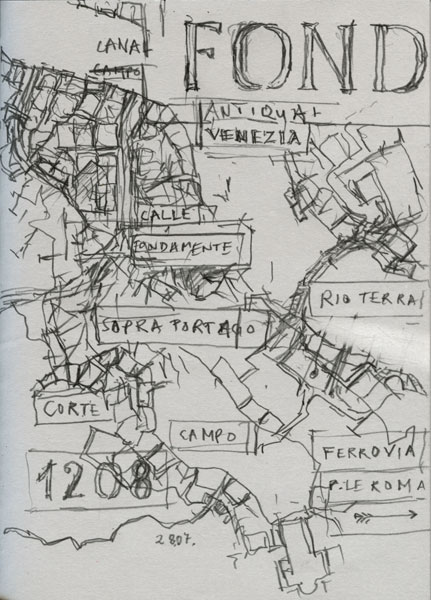 FOND
CANAL
CAMPO
ANTIQUA
VENEZIA
CALLE
FONDAMENTE
RIO TERRA
SOPRA PORTAGO
CORTE
CAMPO
FERROVIA
P.LE ROMA
1208
2807.